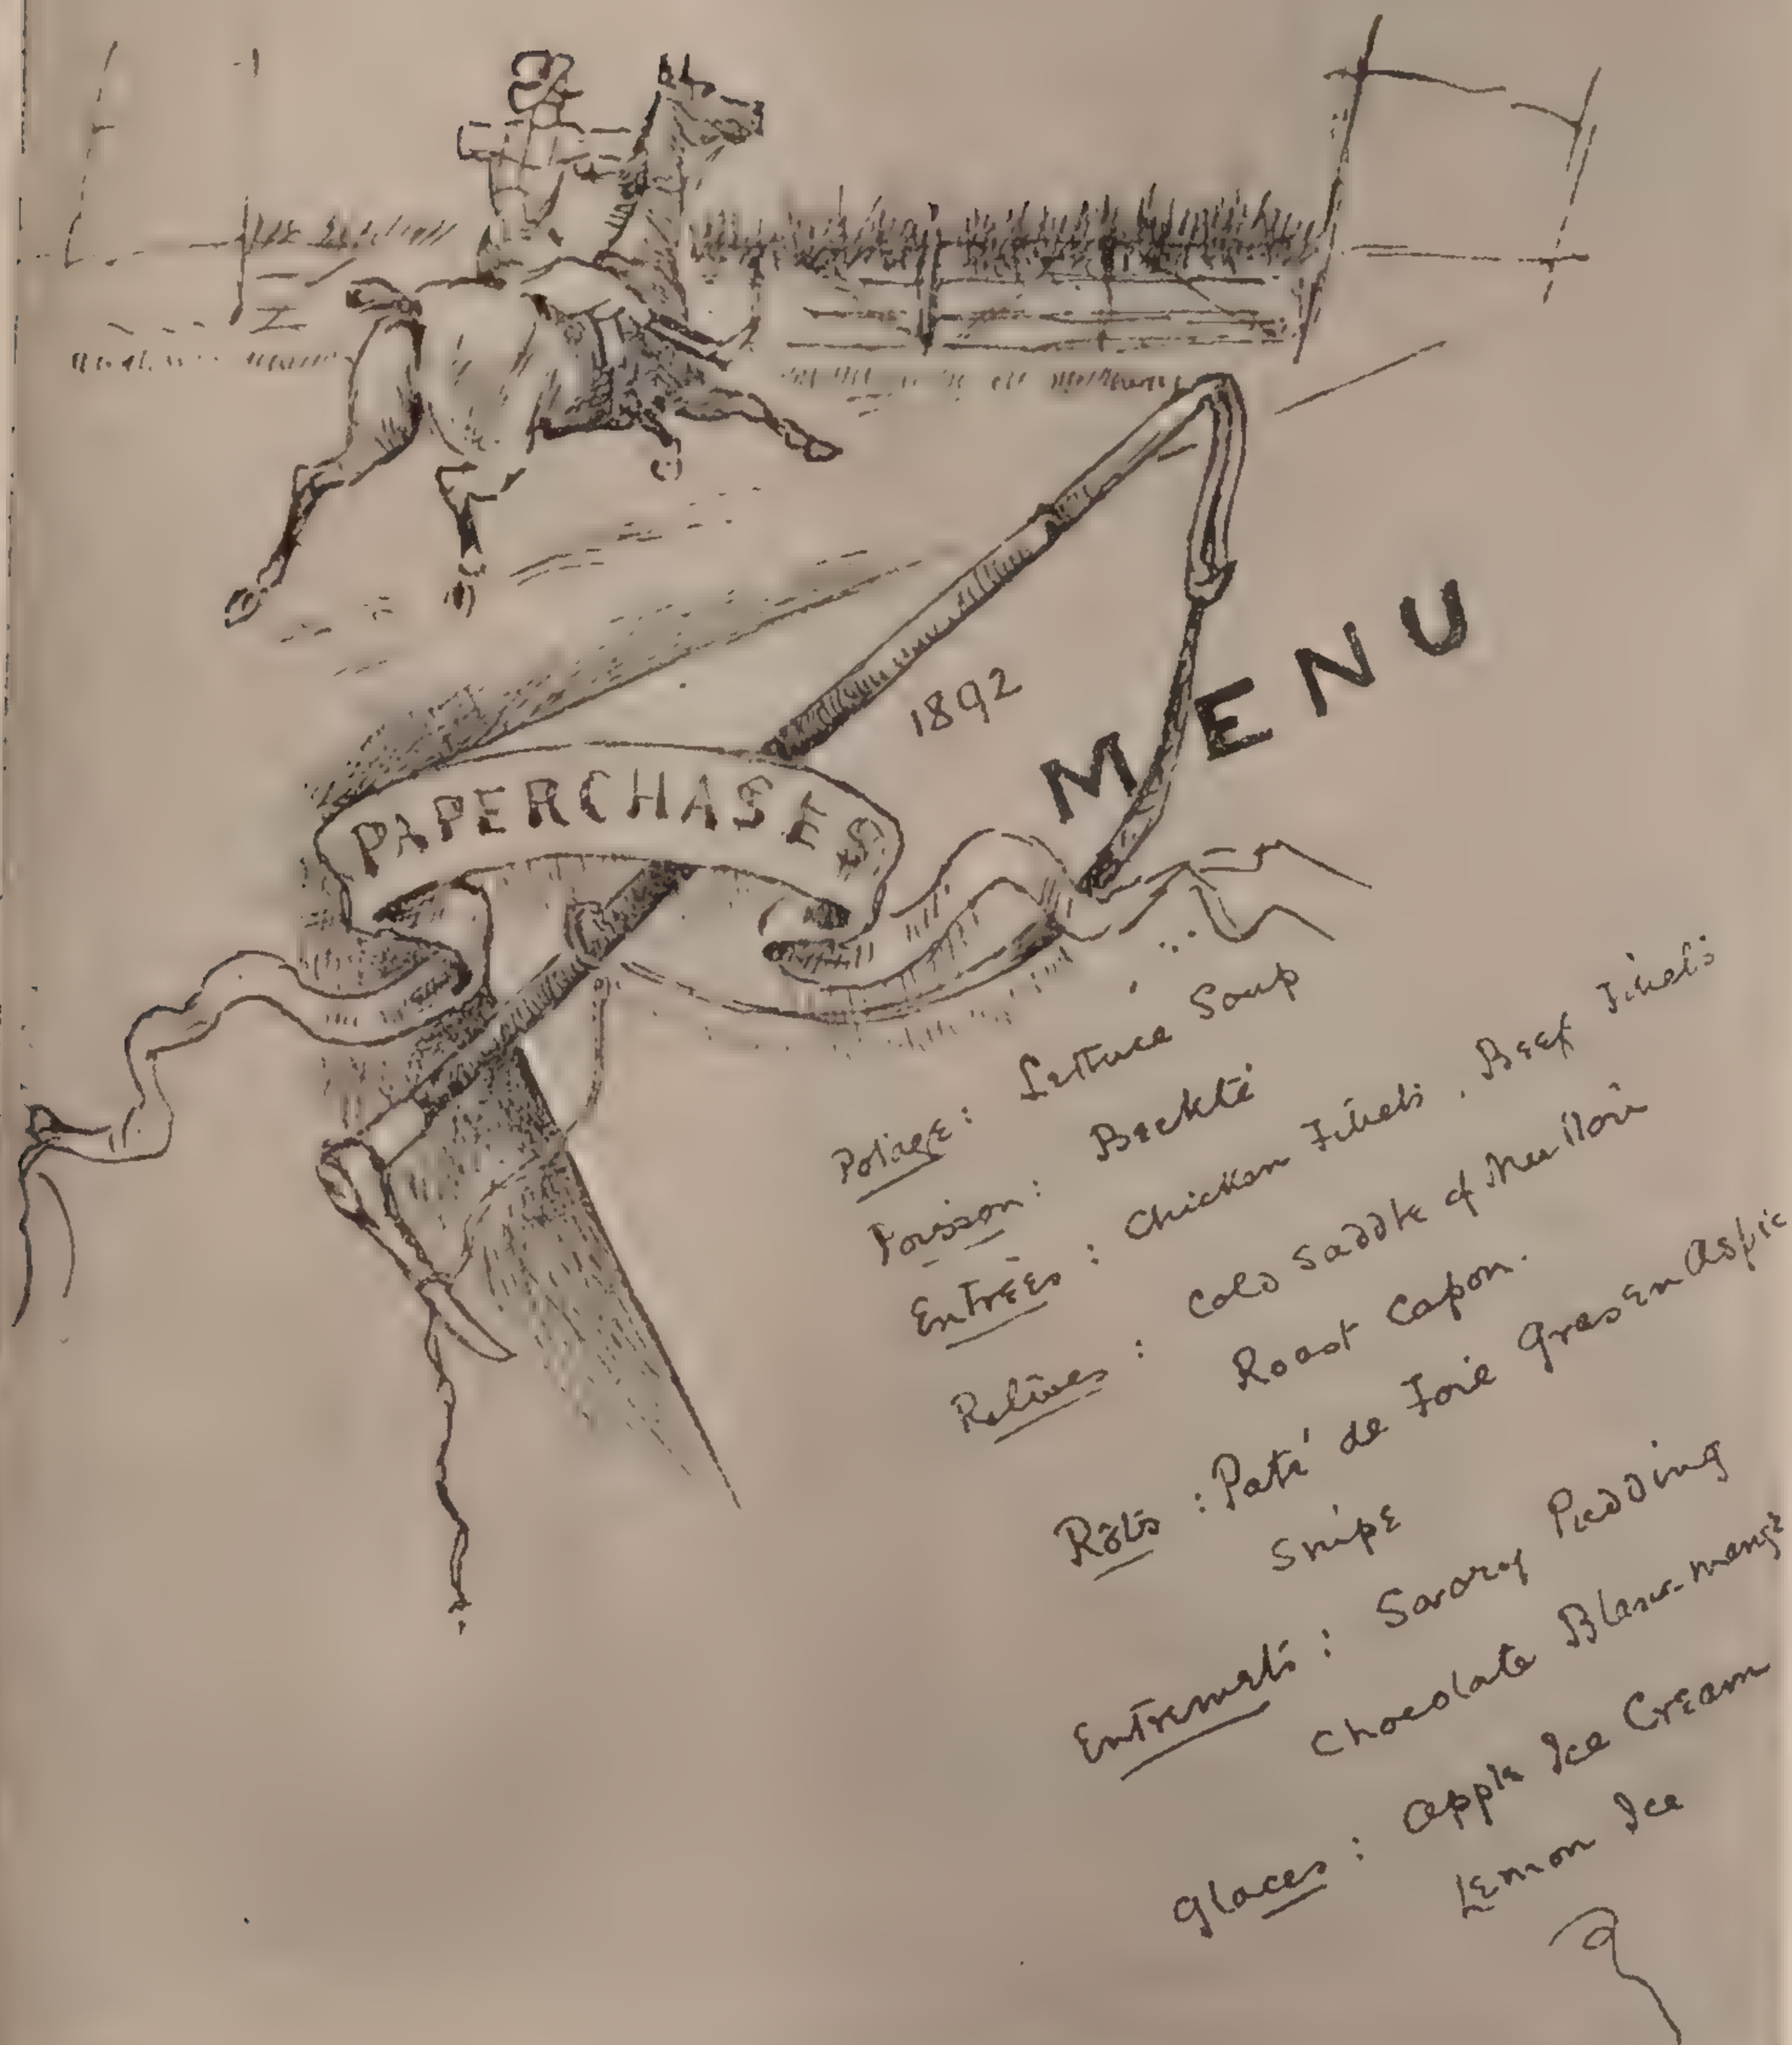 1892
MENU
PAPERCHASES
Potage: Lettuce Soup
Poisson: Beckté
Entrées: Chicken Filets. Beef Filets
Relèves: Cold Saddle of Mutton
Roast Capon.
Rôtis: Paté de Foie Gras en Aspic
Snipe
Entremets: Savory Pudding
Chocolate Blanc-mange
Glaces: Apple Ice Cream
Lemon Ice